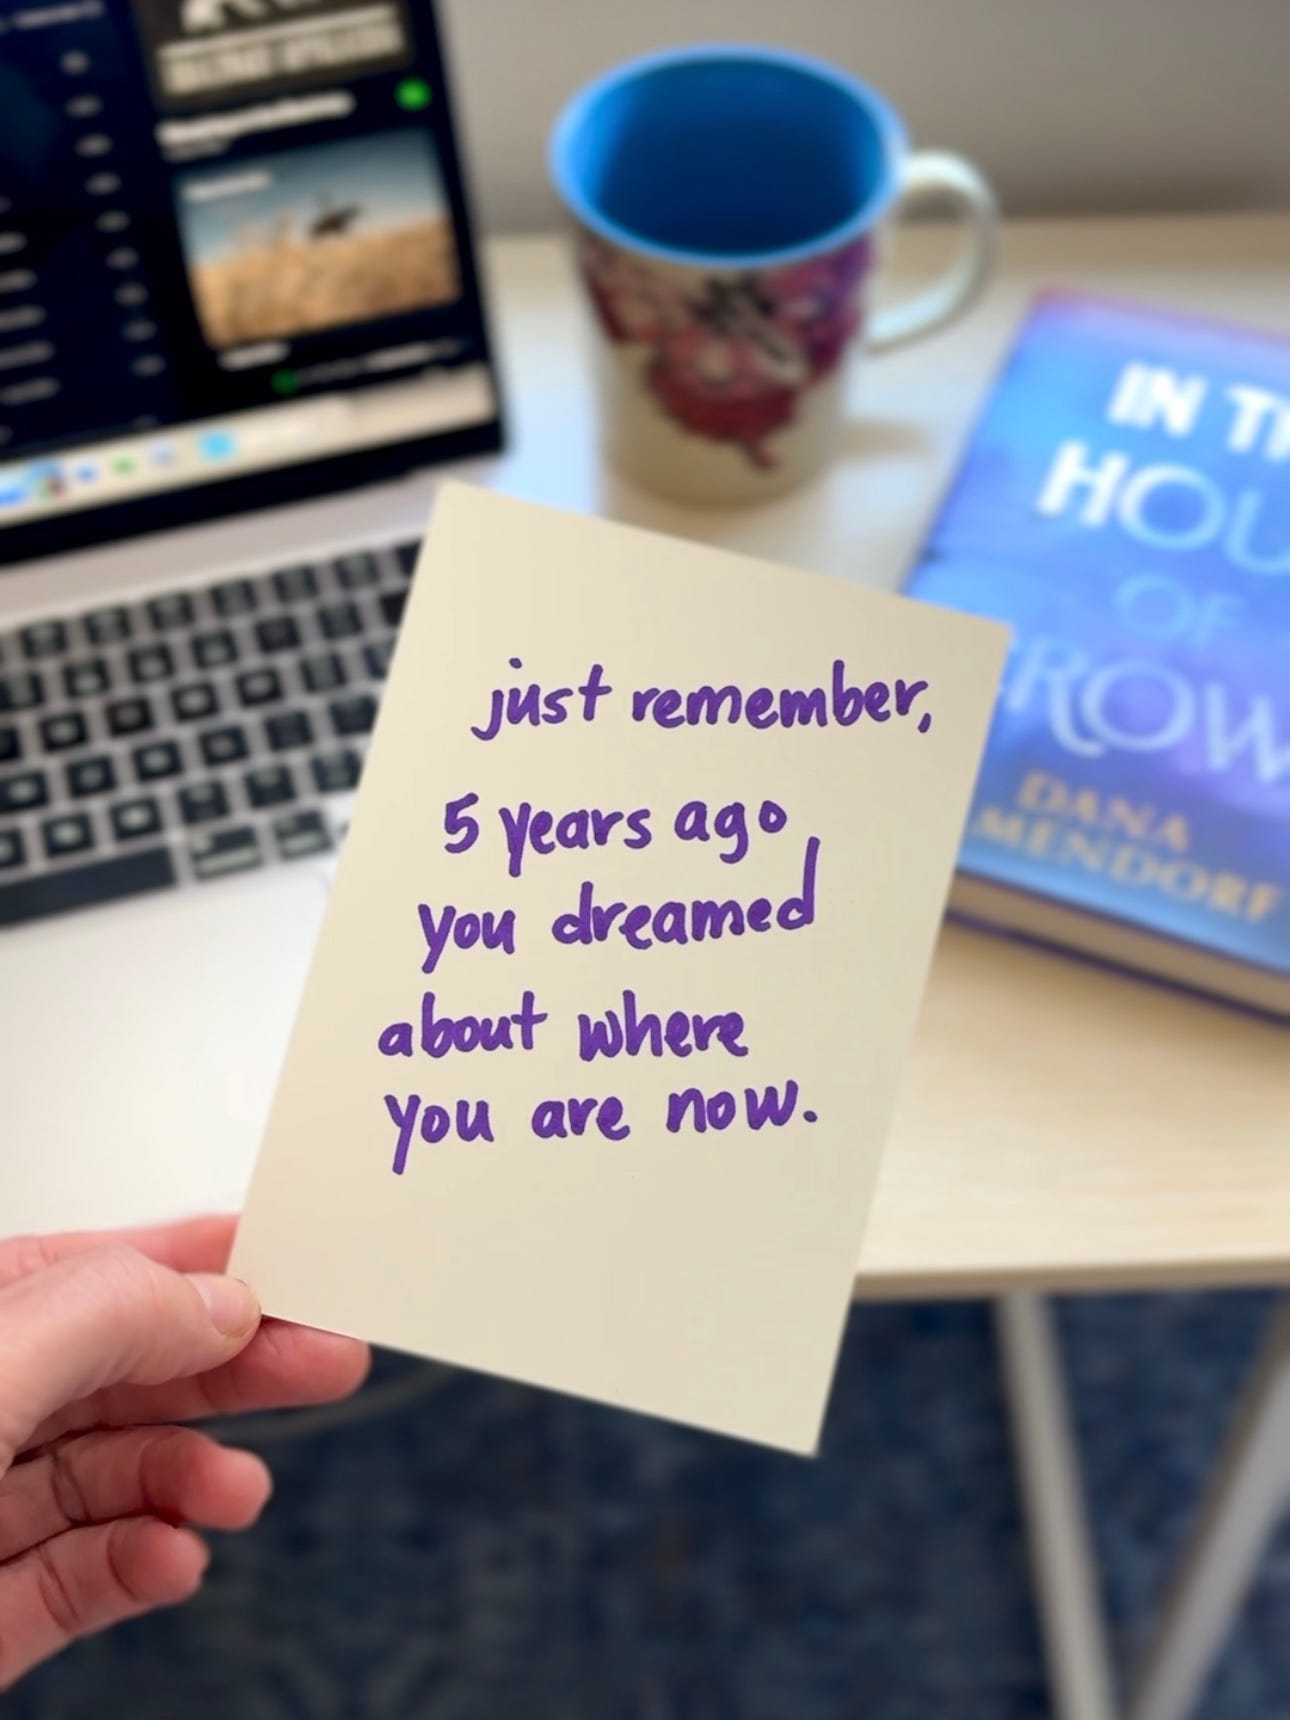 just remember,
5 years ago
you dreamed
about where
you are now.
IN
HOU
OF
ROW
DANA
MENDORF